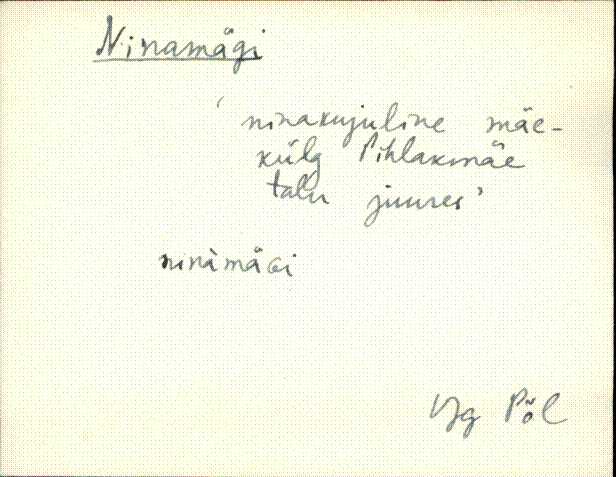 Ninamägi
' ninakujuline mäe-
külg Pihlakmäe
talu juures'
ninàmäGi
Vg Põl